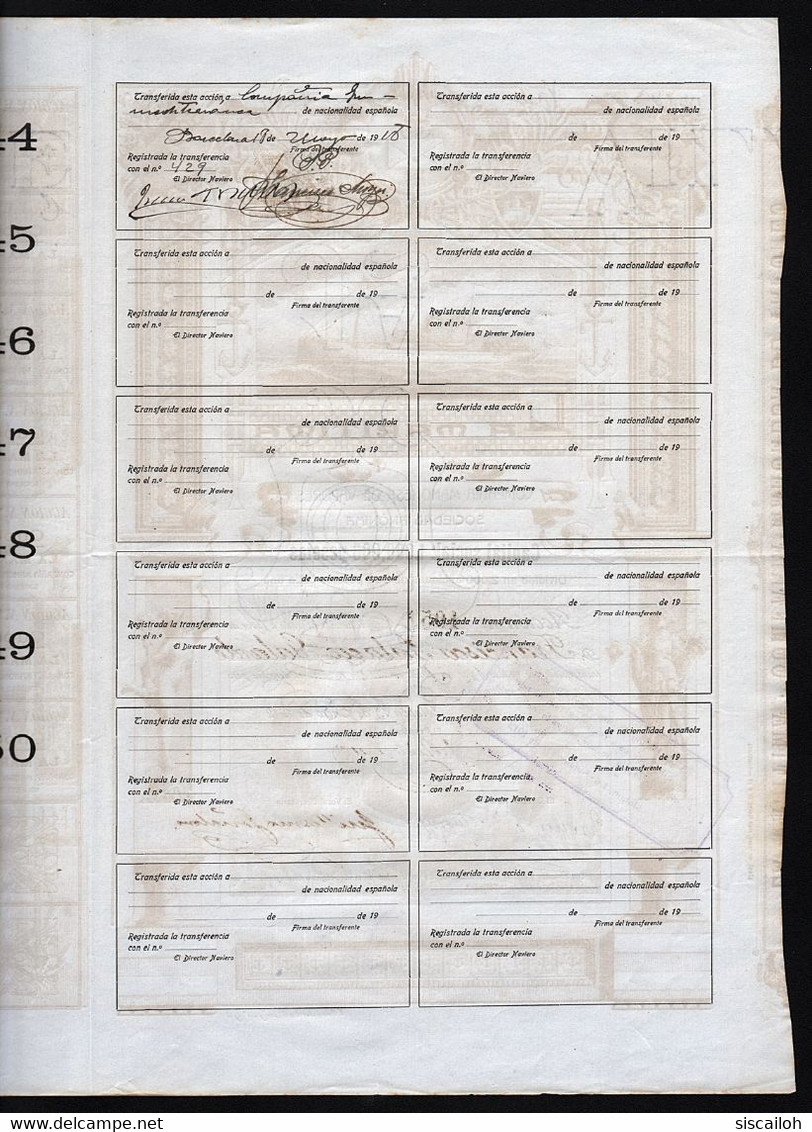 Transferida esta acción a Compañia
de nacionalidad española
Barcelona 18 de Mayo de 1918
Firma del transferente
Registrada la transferencia
con el n.º 429
El Director Naviero
Transferida esta acción a
de nacionalidad española
de de 19
Firma del transferente
Registrada la transferencia
con el n.º
El Director Naviero
44
Transferida esta acción a
de nacionalidad española
de de 19
Firma del transferente
Registrada la transferencia
con el n.º
El Director Naviero
Transferida esta acción a
de nacionalidad española
de de 19
Firma del transferente
Registrada la transferencia
con el n.º
El Director Naviero
45
46
Transferida esta acción a
de nacionalidad española
de de 19
Firma del transferente
Registrada la transferencia
con el n.º
El Director Naviero
Transferida esta acción a
de nacionalidad española
de de 19
Firma del transferente
Registrada la transferencia
con el n.º
El Director Naviero
47
48
Transferida esta acción a
de nacionalidad española
de de 19
Firma del transferente
Registrada la transferencia
con el n.º
El Director Naviero
Transferida esta acción a
de nacionalidad española
de de 19
Firma del transferente
Registrada la transferencia
con el n.º
El Director Naviero
49
Transferida esta acción a
de nacionalidad española
de de 19
Firma del transferente
Registrada la transferencia
con el n.º
El Director Naviero
Transferida esta acción a
de nacionalidad española
de de 19
Firma del transferente
Registrada la transferencia
con el n.º
El Director Naviero
50
Transferida esta acción a
de nacionalidad española
de de 19
Firma del transferente
Registrada la transferencia
con el n.º
El Director Naviero
Transferida esta acción a
de nacionalidad española
de de 19
Firma del transferente
Registrada la transferencia
con el n.º
El Director Naviero
Delcampe.net
siscailoh